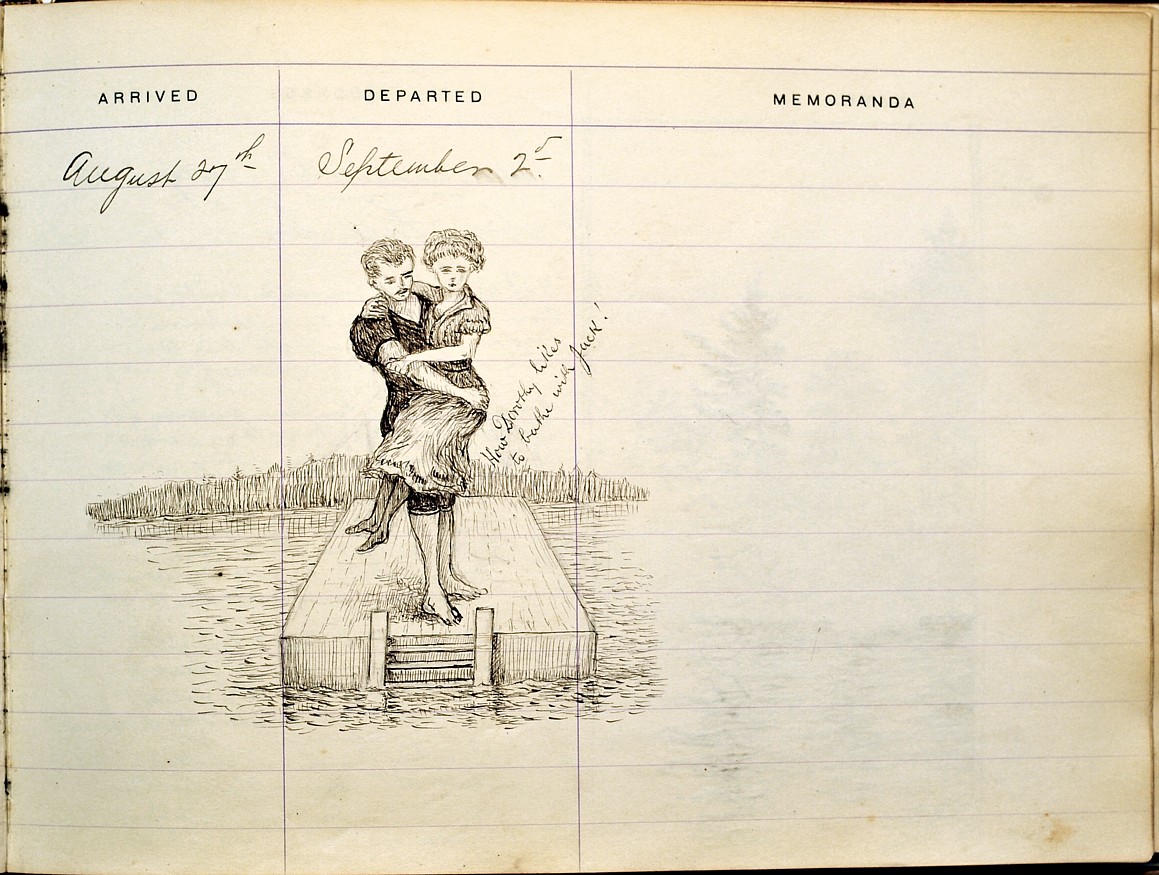 ARRIVED DEPARTED MEMORANDA
August 27th September 2d.
How Dorothy likes
to bathe with Jack!